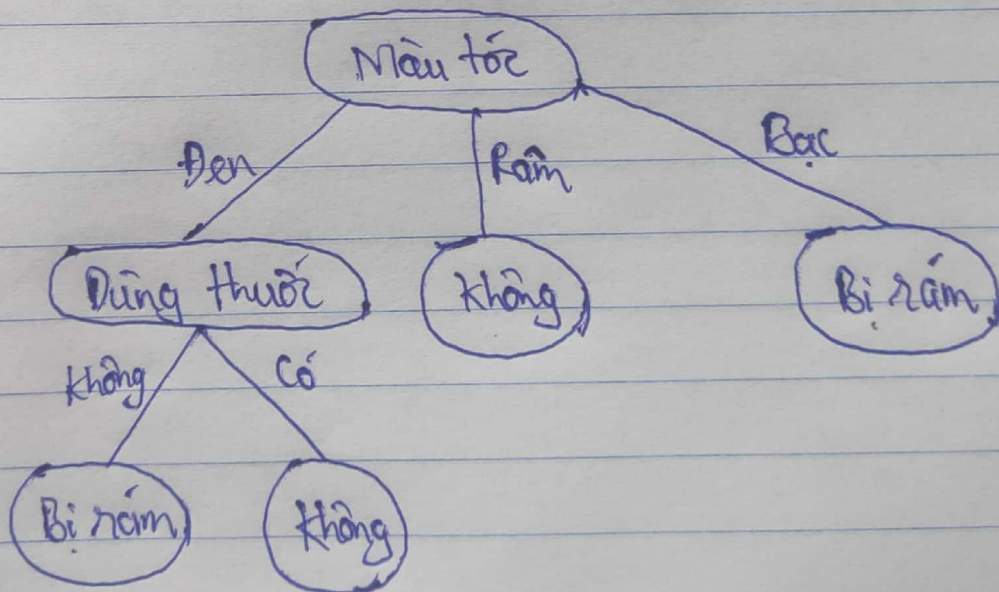 Màu tóc
Đen
Râm
Bạc
Dùng thuốc
Không
Bị rám
Không
Có
Bị rám
Không